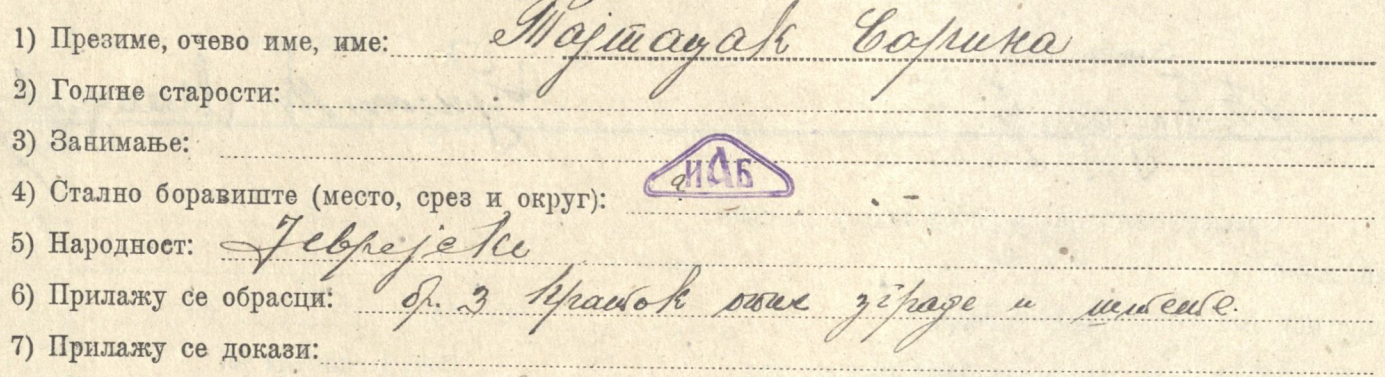 1) Презиме, очево име, име: Тајтацак Сарина
2) Године старости:
3) Занимање:
ИАБ
4) Стално боравиште (место, срез и округ):
5) Народност: Јеврејске
6) Прилажу се обрасци: бр. 3 кратак опис зграде и штете.
7) Прилажу се докази: